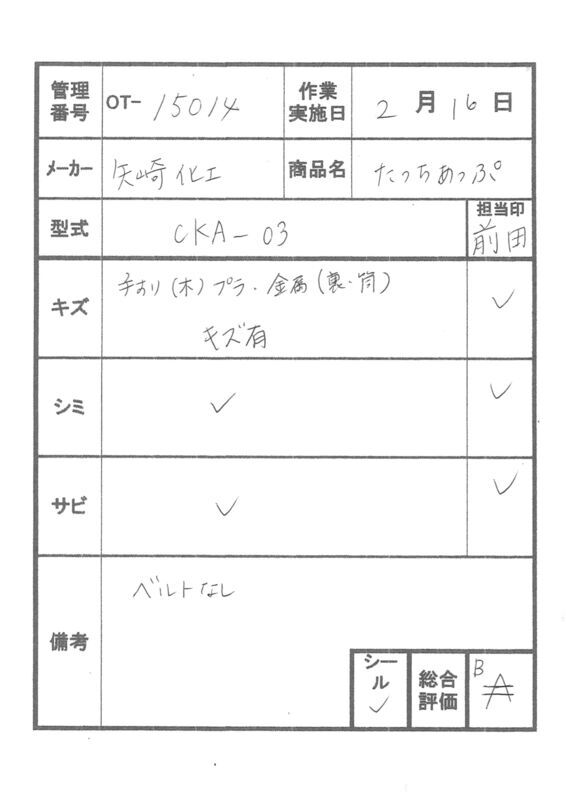 管理番号 OT-15014 作業実施日 2月16日
メーカー 矢崎化工 商品名 たっちあっぷ
型式 CKA-03 担当印 前田
キズ 手すり(木)プラ・金属(裏・筒) ✓
キズ有
シミ ✓ ✓
サビ ✓ ✓
備考 ベルトなし
シール ✓ 総合評価 B A